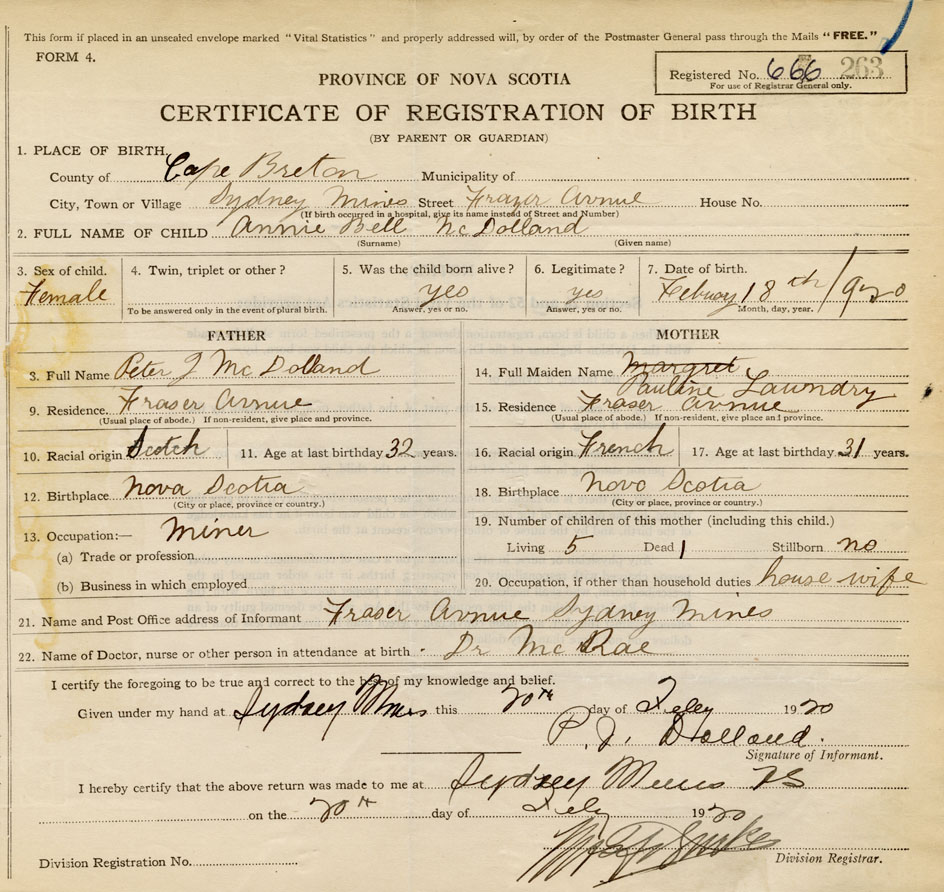 This form if placed in an unsealed envelope marked "Vital Statistics" and properly addressed will, by order of the Postmaster General pass through the Mails "FREE."
FORM 4.
PROVINCE OF NOVA SCOTIA
Registered No. 666 263
For use of Registrar General only.
CERTIFICATE OF REGISTRATION OF BIRTH
(BY PARENT OR GUARDIAN)
1. PLACE OF BIRTH.
County of Cape Breton Municipality of
City, Town or Village Sydney Mines Street Frazer Avnue House No.
(If birth occurred in a hospital, give its name instead of Street and Number)
2. FULL NAME OF CHILD Annie Bell Mc Dolland
(Surname) (Given name)
3. Sex of child. 4. Twin, triplet or other? 5. Was the child born alive? 6. Legitimate? 7. Date of birth.
Female yes yes Febuay 18th 1920
To be answered only in the event of plural birth. Answer, yes or no. Answer, yes or no. Month, day, year.
FATHER MOTHER
3. Full Name Peter J Mc Dolland 14. Full Maiden Name Margret
Pauline Lawndry
9. Residence. Fraser Avnue 15. Residence Fraser Avnue
(Usual place of abode.) If non-resident, give place and province. (Usual place of abode.) If non-resident, give place and province.
10. Racial origin Scotch 11. Age at last birthday 32 years. 16. Racial origin French 17. Age at last birthday 31 years.
12. Birthplace Nova Scotia 18. Birthplace Novo Scotia
(City or place, province or country.) (City or place, province or country.)
13. Occupation:— Miner 19. Number of children of this mother (including this child.)
(a) Trade or profession Living 5 Dead 1 Stillborn no
(b) Business in which employed 20. Occupation, if other than household duties house wife
21. Name and Post Office address of Informant Fraser Avnue Sydney Mines
22. Name of Doctor, nurse or other person in attendance at birth - Dr McRae
I certify the foregoing to be true and correct to the best of my knowledge and belief.
Given under my hand at Sydney Mines this 20th day of Feby 1920
P. J. Dolland.
Signature of Informant.
I hereby certify that the above return was made to me at Sydney Mines NS
on the 20th day of Feby 1920
Division Registration No. Division Registrar.